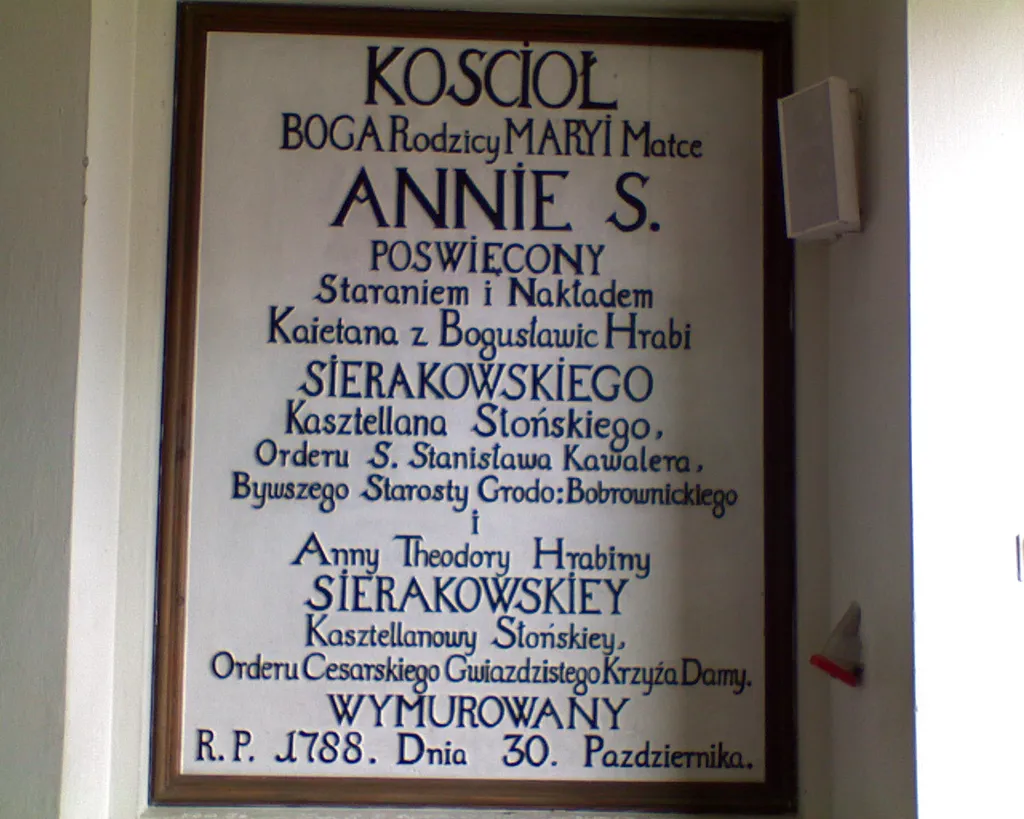 KOSCIOŁ
BOGA Rodzicy MARYI Matce
ANNIE S.
POSWIĘCONY
Staraniem i Nakładem
Kaietana z Bogusławic Hrabi
SIERAKOWSKIEGO
Kasztellana Słońskiego,
Orderu S. Stanisława Kawalera,
Bywszego Starosty Grodo: Bobrownickiego
i
Anny Theodory Hrabiny
SIERAKOWSKIEY
Kasztellanowy Słońskiey,
Orderu Cesarskiego Gwiazdzistego Krzyźa Damy.
WYMUROWANY
R. P. 1788. Dnia 30. Pazdziernika.